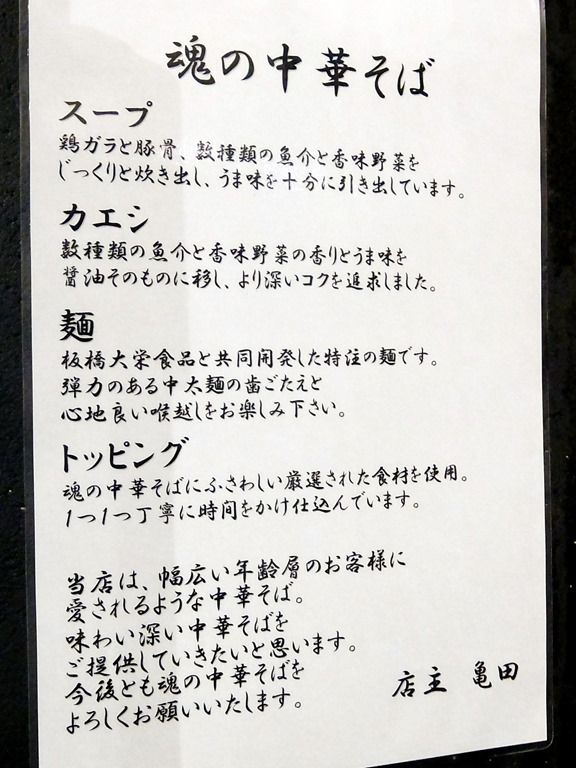 魂の中華そば
スープ
鶏ガラと豚骨、数種類の魚介と香味野菜を
じっくりと炊き出し、うま味を十分に引き出しています。
カエシ
数種類の魚介と香味野菜の香りとうま味を
醤油そのものに移し、より深いコクを追求しました。
麺
板橋大栄食品と共同開発した特注の麺です。
弾力のある中太麺の歯ごたえと
心地良い喉越しをお楽しみ下さい。
トッピング
魂の中華そばにふさわしい厳選された食材を使用。
1つ1つ丁寧に時間をかけ仕込んでいます。
当店は、幅広い年齢層のお客様に
愛されるような中華そば。
味わい深い中華そばを
ご提供していきたいと思います。
今後とも魂の中華そばを
よろしくお願いいたします。
店主 亀田